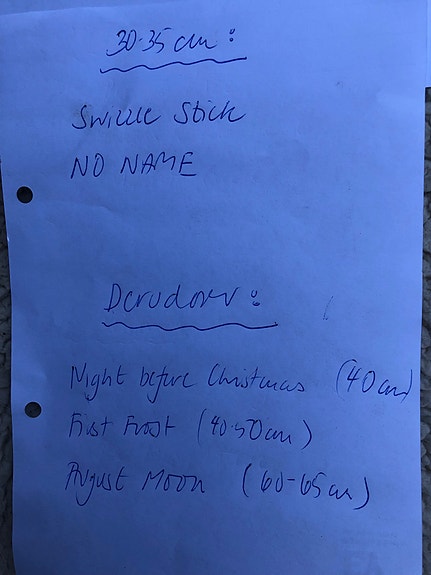 30-35 cm:
Swizzle Stick
NO NAME
Night before Christmas (40 cm)
First Frost (40-50cm)
August Moon (60-65 cm)